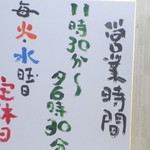 営業時間
11時30分～
夕6時30分
毎火・水曜日
定休日